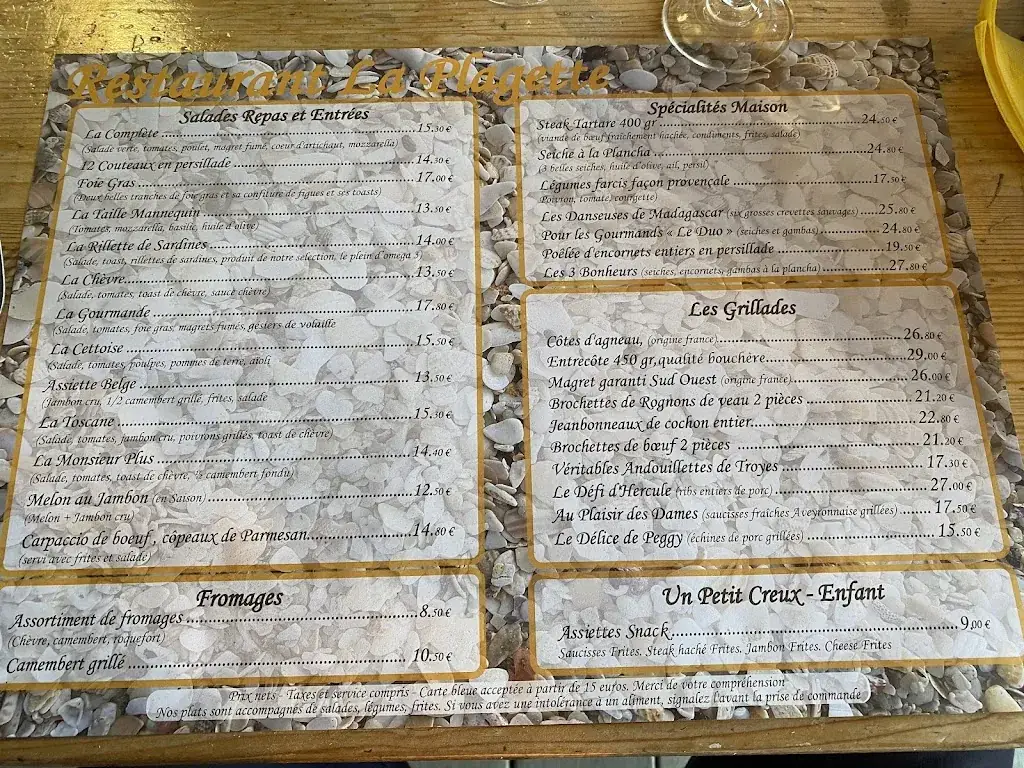 Restaurant La Plagette
Salades Repas et Entrées
La Complète ........ 15.30 €
(Salade verte, tomates, poulet, magret fumé, coeur d'artichaut, mozzarella)
12 Couteaux en persillade ........ 14.30 €
Foie Gras ........ 17.00 €
(Deux belles tranches de foie gras et sa confiture de figues et ses toasts)
La Taille Mannequin ........ 13.50 €
(Tomates, mozzarella, basilic, huile d'olive)
La Rillette de Sardines ........ 14.00 €
(Salade, toast, rillettes de sardines, produit de notre sélection, le plein d'omega 3)
La Chèvre ........ 13.50 €
(Salade, tomates, toast de chèvre, sauce chèvre)
La Gourmande ........ 17.80 €
(Salade, tomates, foie gras, magrets fumés, gésiers de volaille
La Cettoise ........ 15.50 €
(Salade, tomates, poulpes, pommes de terre, aïoli
Assiette Belge ........ 13.50 €
(Jambon cru, 1/2 camembert grillé, frites, salade
La Toscane ........ 15.30 €
(Salade, tomates, jambon cru, poivrons grillés, toast de chèvre)
La Monsieur Plus ........ 14.40 €
(Salade, tomates, toast de chèvre, ½ camembert fondu)
Melon au Jambon (en Saison) ........ 12.50 €
(Melon + Jambon cru)
Carpaccio de boeuf , copeaux de Parmesan ........ 14.80 €
(servi avec frites et salade)
Fromages
Assortiment de fromages ........ 8.50 €
(Chèvre, camembert, roquefort)
Camembert grillé ........ 10.50 €
Spécialités Maison
Steak Tartare 400 gr ........ 24.50 €
(viande de bœuf fraîchement hachée, condiments, frites, salade)
Seiche à la Plancha ........ 24.80 €
(3 belles seiches, huile d'olive, ail, persil)
Légumes farcis façon provençale ........ 17.50 €
Poivron, tomate, courgette)
Les Danseuses de Madagascar (six grosses crevettes sauvages) ........ 25.80 €
Pour les Gourmands « Le Duo » (seiches et gambas) ........ 24.80 €
Poêlée d'encornets entiers en persillade ........ 19.50 €
Les 3 Bonheurs (seiches, encornets, gambas à la plancha) ........ 27.80 €
Les Grillades
Côtes d'agneau, (origine france) ........ 26.80 €
Entrecôte 450 gr,qualité bouchère ........ 29.00 €
Magret garanti Sud Ouest (origine france) ........ 26.00 €
Brochettes de Rognons de veau 2 pièces ........ 21.20 €
Jeanbonneaux de cochon entier ........ 22.80 €
Brochettes de bœuf 2 pièces ........ 21.20 €
Véritables Andouillettes de Troyes ........ 17.30 €
Le Défi d'Hercule (ribs entiers de porc) ........ 27.00 €
Au Plaisir des Dames (saucisses fraîches Aveyronnaise grillées) ........ 17.50 €
Le Délice de Peggy (échines de porc grillées) ........ 15.50 €
Un Petit Creux - Enfant
Assiettes Snack ........ 9,00 €
Saucisses Frites. Steak haché Frites. Jambon Frites. Cheese Frites
Prix nets - Taxes et service compris - Carte bleue acceptée à partir de 15 euros. Merci de votre compréhension
Nos plats sont accompagnés de salades, légumes, frites. Si vous avez une intolérance à un aliment, signalez l'avant la prise de commande